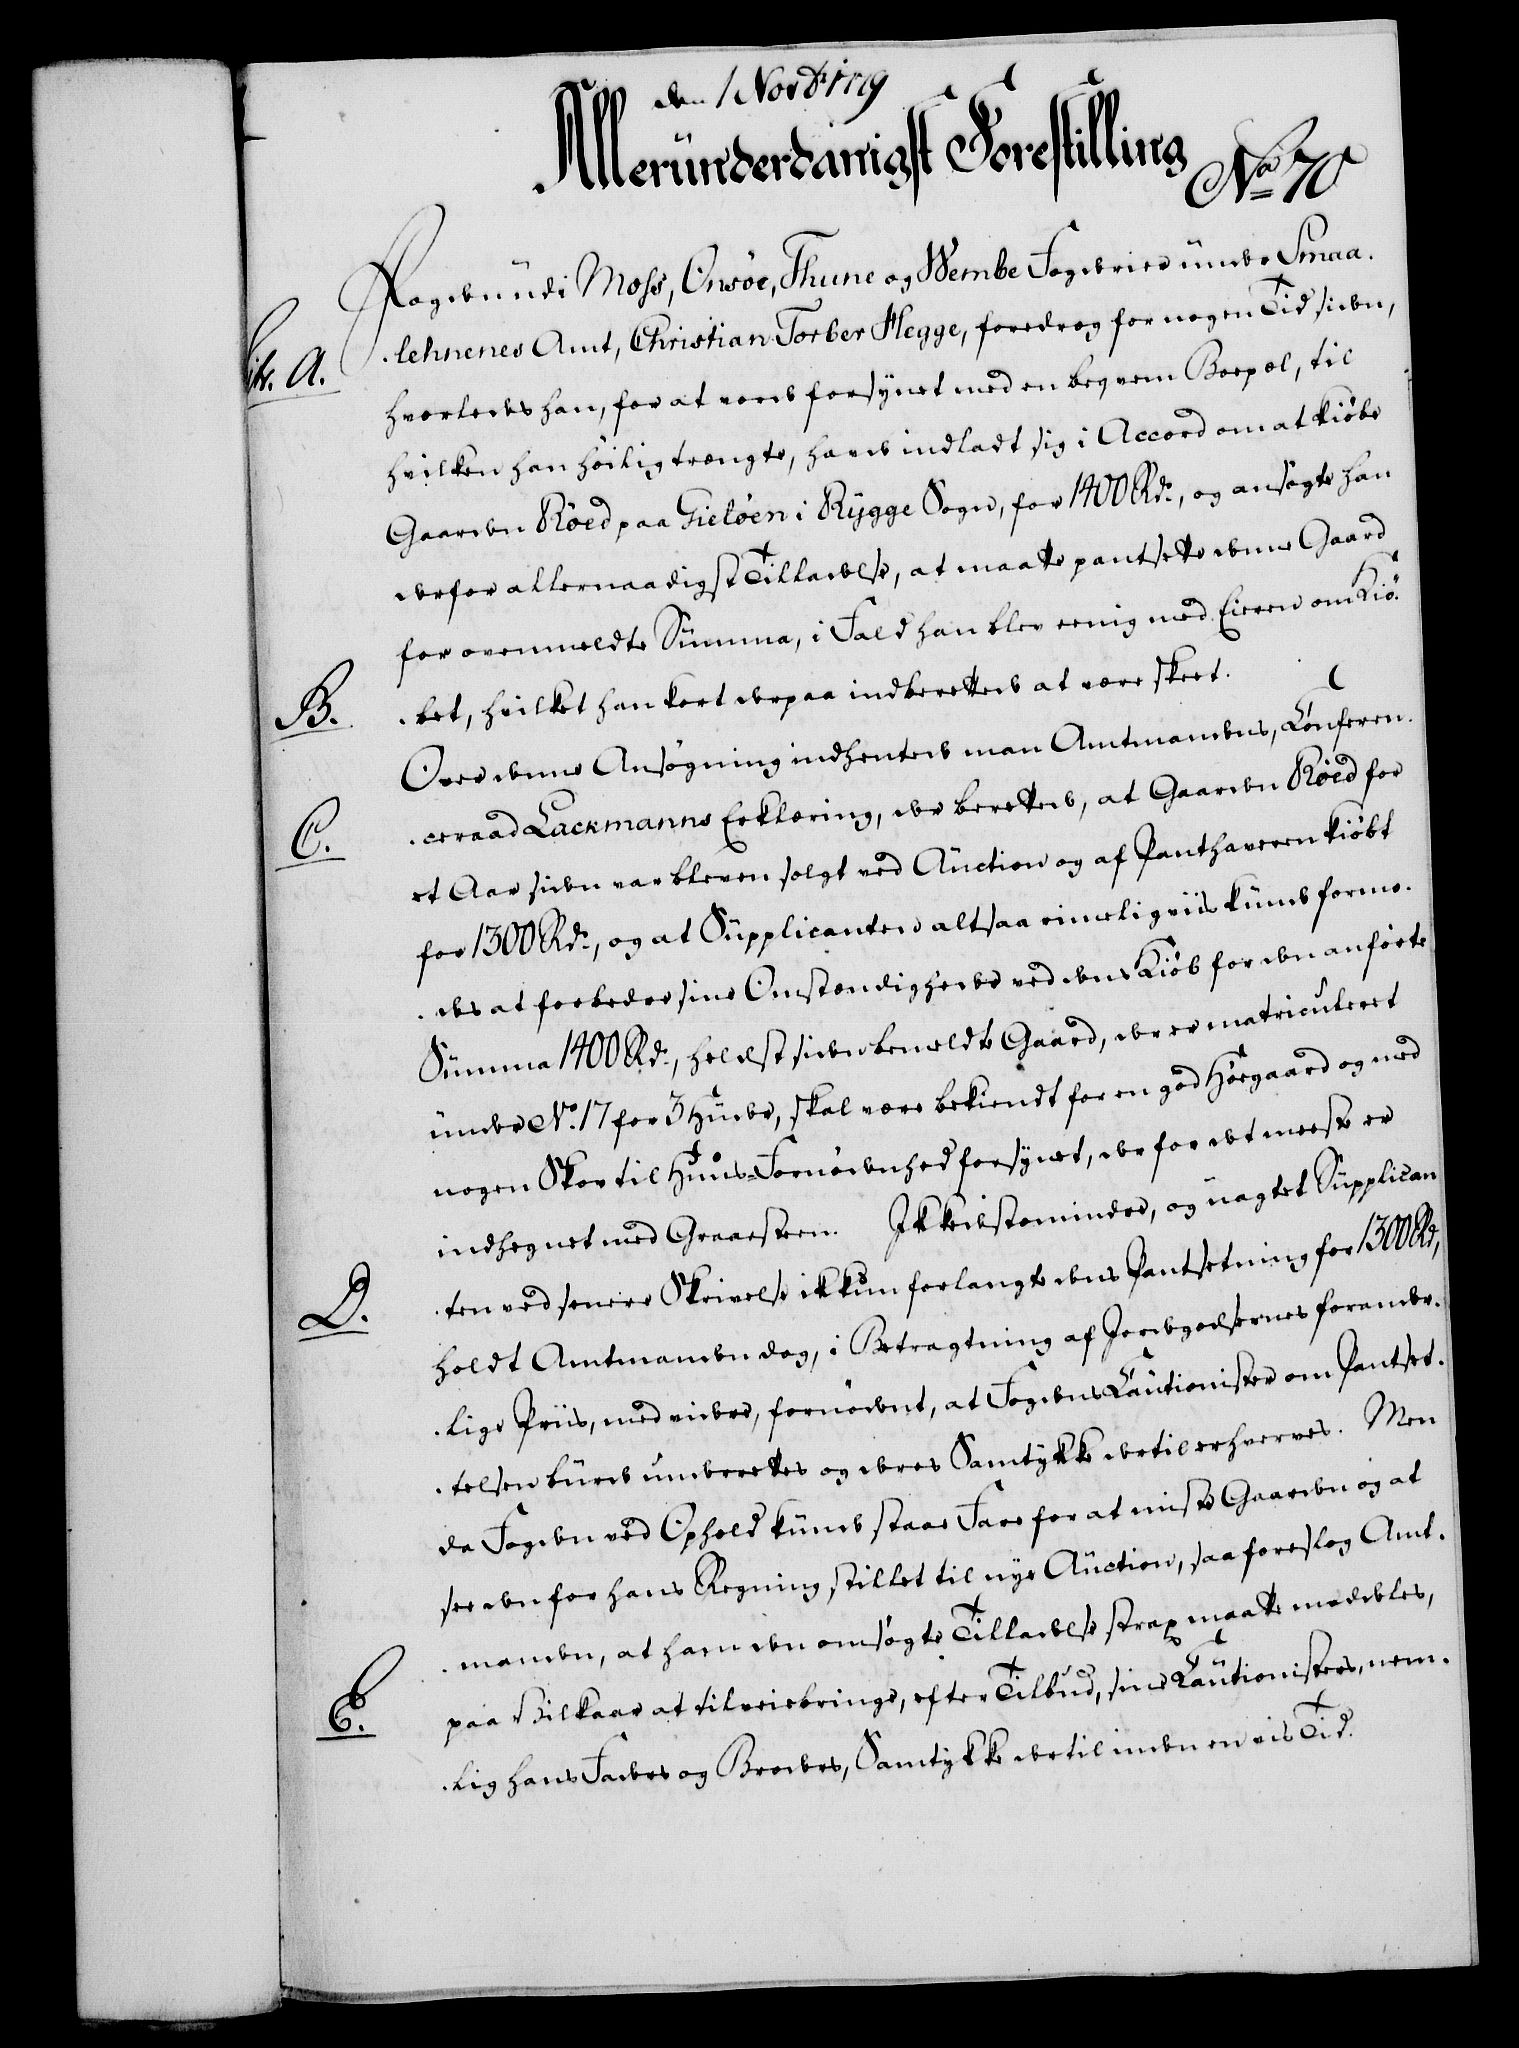 den 1 Novbr 1779
Alleründerdanigst Forestilling
No 70
Fogden udi Moss, Onsöe, Thune og Wembe Fogderier ünder Smaa-
Litr. A.
-lehnenes Amt, Christian Torber Hegge, foredrog for nogen Tid siden,
hvorledes han, for at vorde forsÿnet med en beqvem Boepæl, til
hvilken han höiligtrængte, havde indladt sig i Accord om at kiöbe
Gaarden Röed paa Gielöen i Rÿgge Sogn, for 1400 Rd., og ansögte han
derfor allernaadigst Tilladelse, at maatte pantsette denne Gaard
for ovenmeldte Sümma, i Fald han blev eenig med Eieren om Kiö-
B.
-bet, hvilket han kort derpaa indberettede at være skeet.
Over denne Ansögning indhentede man Amtmandens, Conferen-
C.
-ceraad Lackmanns Erklæring, der berettede, at Gaarden Röed for
et Aar siden var bleven solgt ved Aüction og af Panthaveren kiöbt
for 1300 Rd., og at Süpplicanten altsaa rimeligviis künde formo-
-des at forbedre sine Omstændigheder ved dens Kiöb for den anförte
Sümma 1400 Rd., heldst siden bemeldte Gaard, der er matriculeret
ünder No. 17 for 3 Hüder, skal være bekiendt for en god Höegaard og med
nogen Skov til Hüüs-Fornödenhed forsÿnet, der for det meeste er
indhegnet med Graaesteen. Ikkedestomindre, og üagtet Süpplican
D.
-ten ved senere Skrivelse ikkun forlangte dens Pantsetning for 1300 Rd,
holdt Amtmanden dog, i Betragtning af Jordegodsernes foränder-
-lige Priis, med videre, fornödent, at Fogdens Caütionister om Pantset-
-telsen bürde ünderrettes og deres Samtÿkke dertil erhverves. Men
da Fogden ved Ophold künde staae Fare for at miste Gaarden og at
see den for hans Regning stillet til nye Aüction, saa foreslog Amt-
-manden, at ham den omsögte Tilladelse strax maatte meddeles,
E.
paa Vilkaar at tilveiebringe, efter Tilbüd, sine Caütionisters, nem-
-lig hans Faders og Broders, Samtÿkke dertil inden en vis Tid.